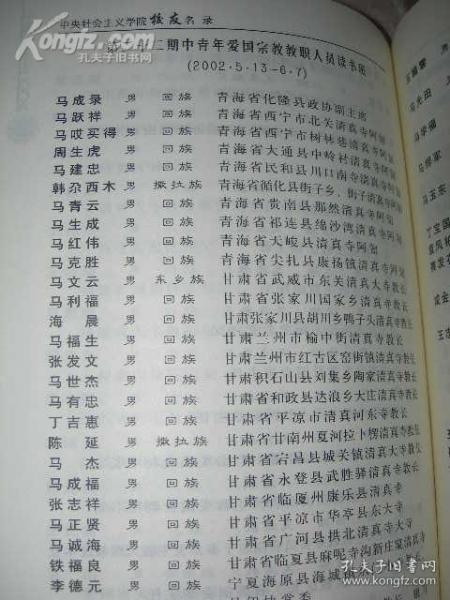 中央社会主义学院校友名录
第 二期中青年爱国宗教教职人员读书班
(2002·5·13—6·7)
马成录 男 回族 青海省化隆县政协副主席
马跃祥 男 回族 青海省西宁市北关清真寺阿訇
马哎买得 男 回族 青海省西宁市树林巷清真寺阿訇
周生虎 男 回族 青海省大通县中岭村清真寺阿訇
马建忠 男 回族 青海省民和县川口南寺清真寺阿訇
韩尕西木 男 撒拉族 青海省循化县街子乡、街子清真寺
马青云 男 回族 青海省贵南县那然清真寺阿訇
马生成 男 回族 青海省祁连县绵沙湾清真寺阿訇
马红伟 男 回族 青海省天峻县清真寺阿訇
马克胜 男 回族 青海省尖扎县康扬镇清真寺阿訇
马文云 男 东乡族 甘肃省武威市东关清真大寺教长
马利福 男 回族 甘肃省张家川国家乡清真寺教长
海晨 男 回族 甘肃张家川县胡川乡鸭子头清真寺教长
马福生 男 回族 甘肃兰州市榆中街清真寺教长
张发文 男 回族 甘肃兰州市红古区窑街镇清真寺教长
马世杰 男 回族 甘肃积石山县刘集乡陶家清真寺教长
马有忠 男 回族 甘肃省和政县达浪乡大庄清真寺教长
丁吉惠 男 回族 甘肃省平凉市清真河东寺教长
陈延 男 撒拉族 甘肃省甘南州夏河拉卜楞清真寺教长
马杰 男 回族 甘肃省宕昌县城关镇清真寺教长
马成福 男 回族 甘肃省永登县武胜驿清真寺教长
张志祥 男 回族 甘肃省临厦州康乐县清真寺
马正贤 男 回族 甘肃省平凉市华亭县东大寺
马诚海 男 回族 甘肃省广河县拱北清真大寺
铁福良 男 回族 甘肃省临夏县麻呢寺沟新庄清真寺
李德元 男 回族 宁夏海原县海城镇
马光田
马学福
马修军
马玉东
丁宝国
孔夫子旧书网